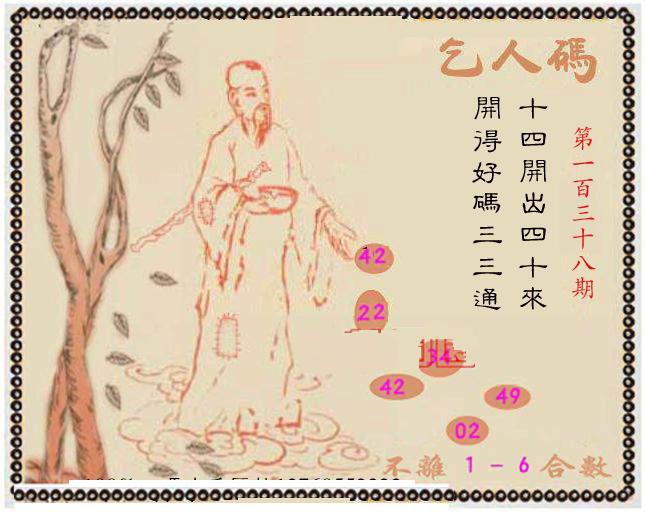 乞人碼
第一百三十八期
十四開出四十來
開得好碼三三通
42
22
34
42
49
02
不離 1-6 合數